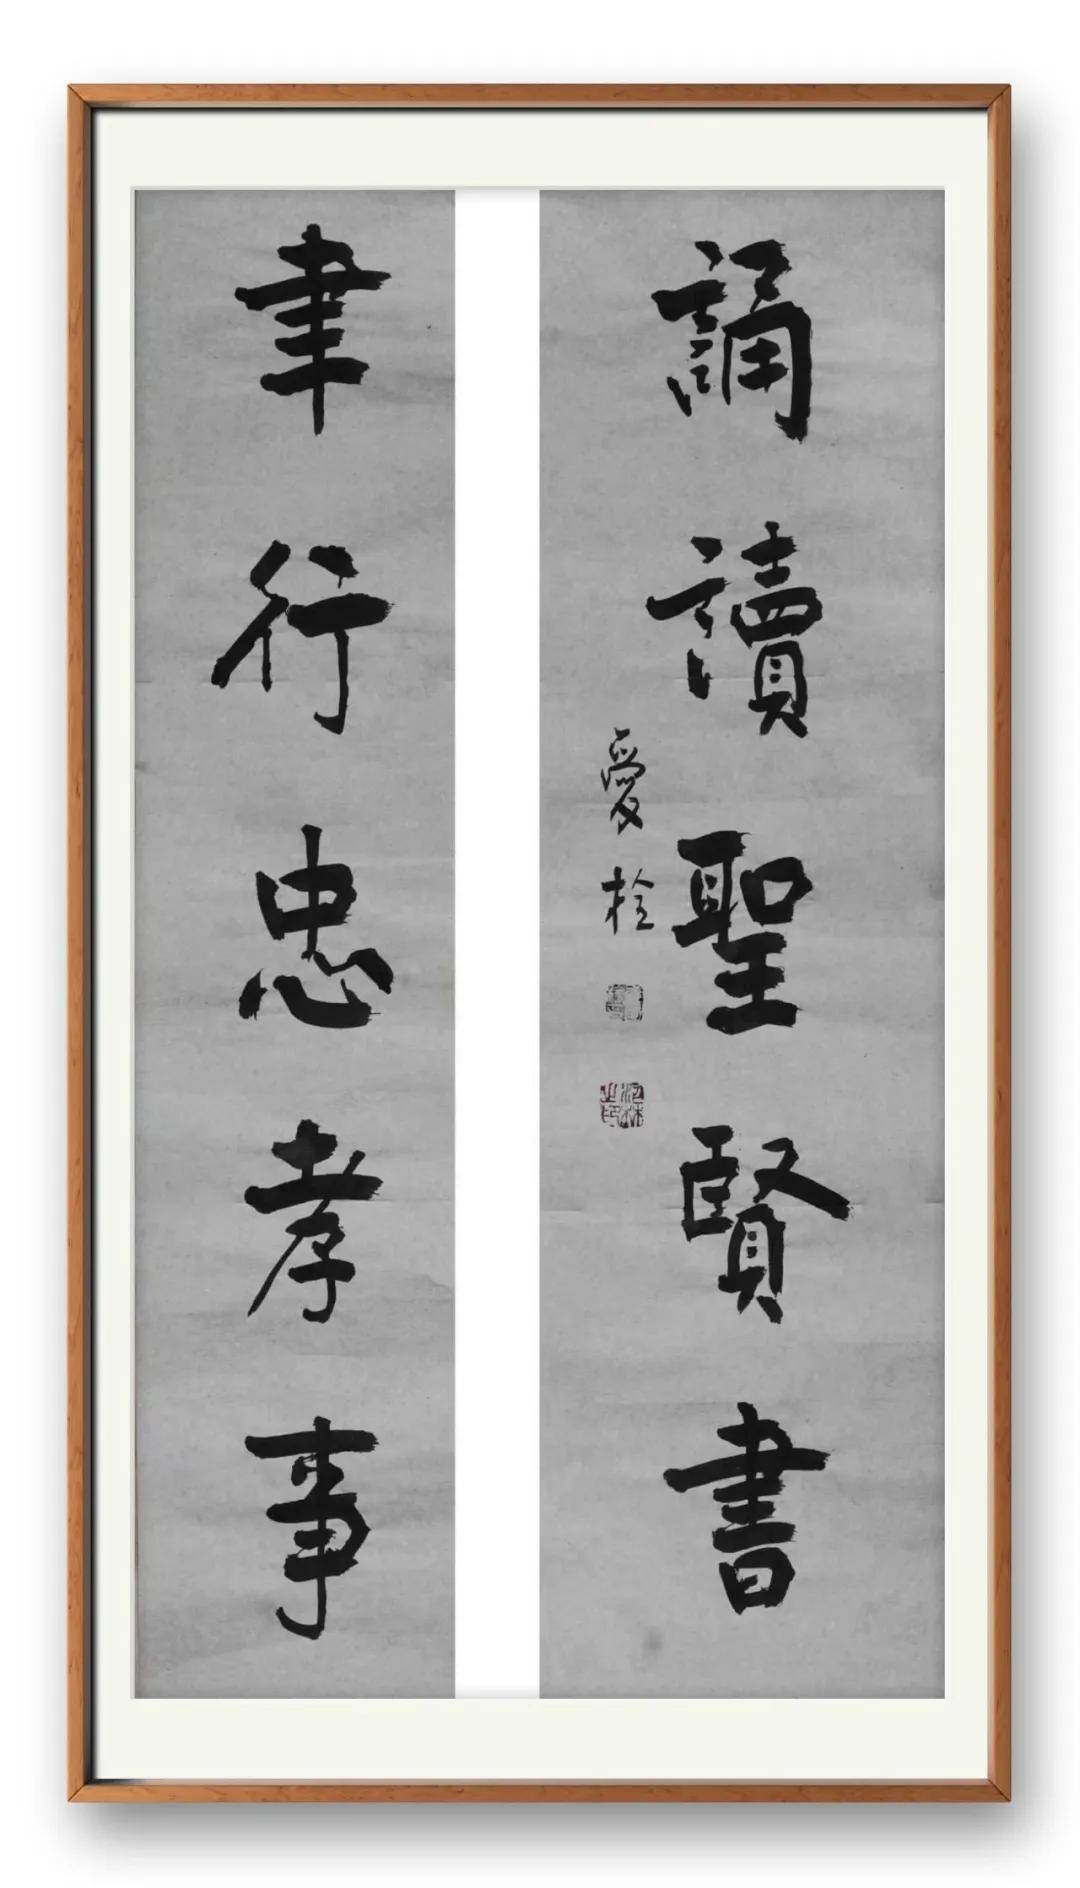 誦讀聖賢書
愛栓
聿行忠孝事